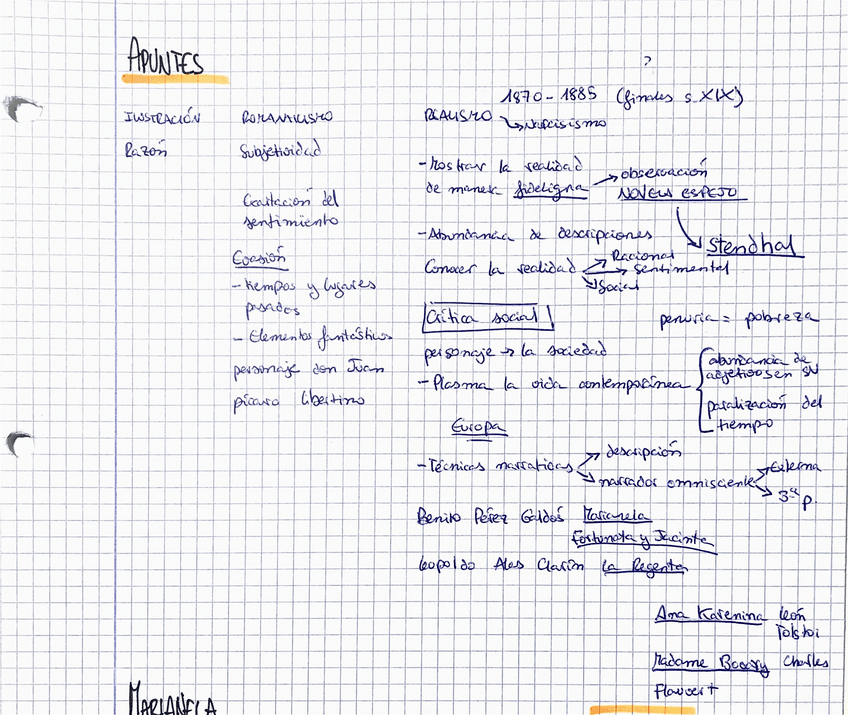 APUNTES
?
1870 - 1885 (finales s. XIX)
ILUSTRACIÓN ROMANTICISMO REALISMO
Narcisismo
Razón Subjetividad
- Mostrar la realidad
de manera fideligna observación
NOVELA ESPEJO
Exaltación del
sentimiento
- Abundancia de descripciones
Stendhal
Evasión
Conocer la realidad Racional
Sentimental
Social
- tiempos y lugares
pasados
Crítica social penuria = pobreza
- Elementos fantásticos
personaje don Juan
pícaro libertino
personaje → la sociedad
- Plasma la vida contemporánea abundancia de
adjetivos en SN
paralización del
tiempo
Europa
- Técnicas narrativas descripción
narrador omnisciente Externa
3ª p.
Benito Pérez Galdós Marianela
Fortunata y Jacinta
Leopoldo Alas Clarín La Regenta
Ana Karenina León
Tolstoi
Madame Bovary Charles
Flauvert
MARIANELA